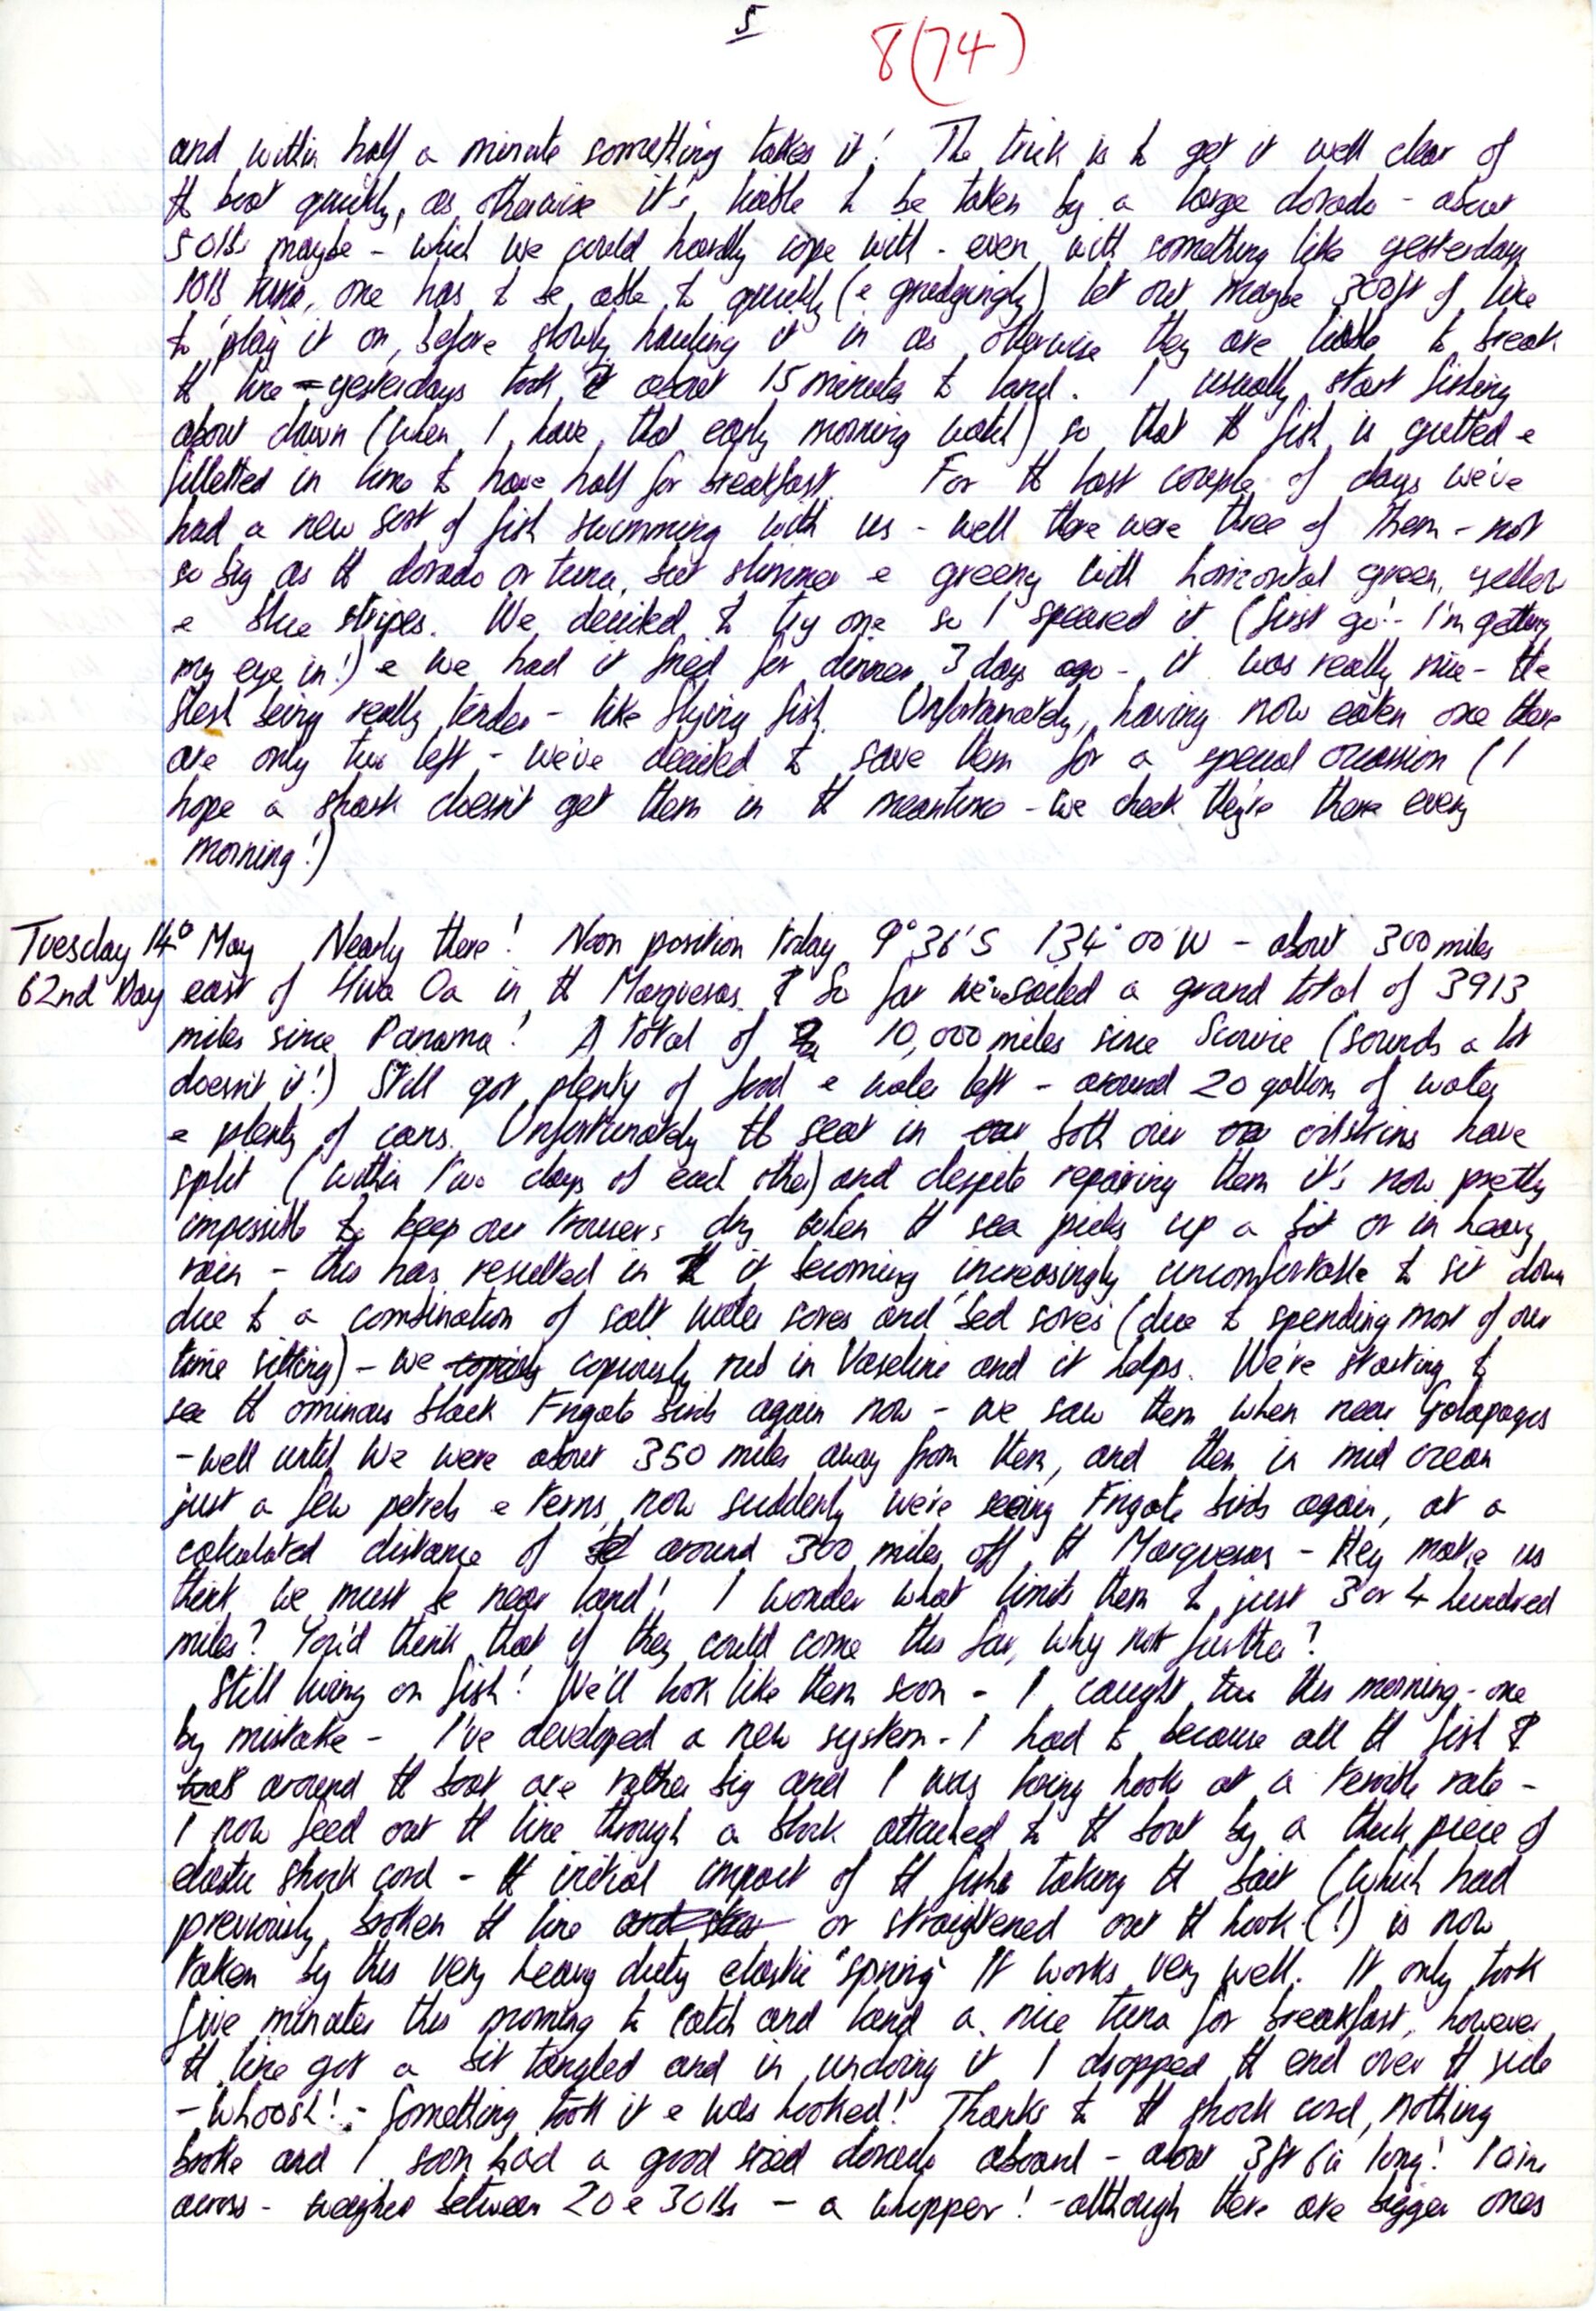 5
8(74)
and within half a minute something takes it! The trick is to get it well clear of
the boat quickly, as otherwise it's liable to be taken by a large dorado - about
50lbs maybe - which we could hardly cope with - even with something like yesterdays
10lb tuna, one has to be able to quickly (& grudgingly) let out maybe 300ft of line
to play it on, before slowly hauling it in as otherwise they are liable to break
the line - yesterdays took about 15 minutes to land. I usually start fishing
about dawn (when I have that early morning watch) so that the fish is gutted &
filletted in time to have half for breakfast. For the last couple of days we've
had a new sort of fish swimming with us - well there were three of them - not
so big as the dorado or tuna, but slimmer & greeny with horizontal green, yellow
& blue stripes. We decided to try one so I speared it (first go! - I'm getting
my eye in!) & we had it fried for dinner 3 days ago - it was really nice - the
flesh being really tender - like flying fish. Unfortunately, having now eaten one there
are only two left - we've decided to save them for a special occasion (I
hope a shark doesn't get them in the meantime - we check they're there every
morning!)
Tuesday 14th May Nearly there! Noon position today 9°36'S 134°00'W - about 300 miles
62nd Day east of Hiva Oa in the Marquesas. So far we've sailed a grand total of 3913
miles since Panama! A total of 10,000 miles since (sounds a lot
doesn't it!) Still got plenty of food & water left - around 20 gallons of water
& plenty of cans. Unfortunately the seat in both our oilskins have
split (within two days of each other) and despite repairing them it's now pretty
impossible to keep our trousers dry when the sea picks up a bit or in heavy
rain - this has resulted in it becoming increasingly uncomfortable to sit down
due to a combination of salt water sores and 'bed sores' (due to spending most of our
time sitting) - we copiously rub in Vaseline and it helps. We're starting to
see the ominous black Frigate birds again now - we saw them when near Galapagos
- well until we were about 350 miles away from them, and then in mid ocean
just a few petrels & terns, now suddenly we're seeing Frigate birds again, at a
calculated distance of around 300 miles off the Marquesas - they make us
think we must be near land! I wonder what limits them to just 3 or 4 hundred
miles? You'd think that if they could come this far, why not further?
Still living on fish! We'll look like them soon - I caught two this morning - one
by mistake - I've developed a new system - I had to because all the fish
around the boat are rather big and I was losing hooks at a terrible rate -
I now feed out the line through a block attached to the boat by a thick piece of
elastic shock cord - the initial impact of the fish taking the bait (which had
previously broken the line or straightened out the hook (!) is now
taken by this very heavy duty elastic "spring" It works very well. It only took
five minutes this morning to catch and land a nice tuna for breakfast, however
the line got a bit tangled and in undoing it I dropped the end over the side
- Whoosh! - something took it & was hooked! Thanks to the shock cord, nothing
broke and I soon had a good sized dorado aboard - about 3ft 6in long! 10ins
across - weighed between 20 & 30lbs - a whopper! - although there are bigger ones